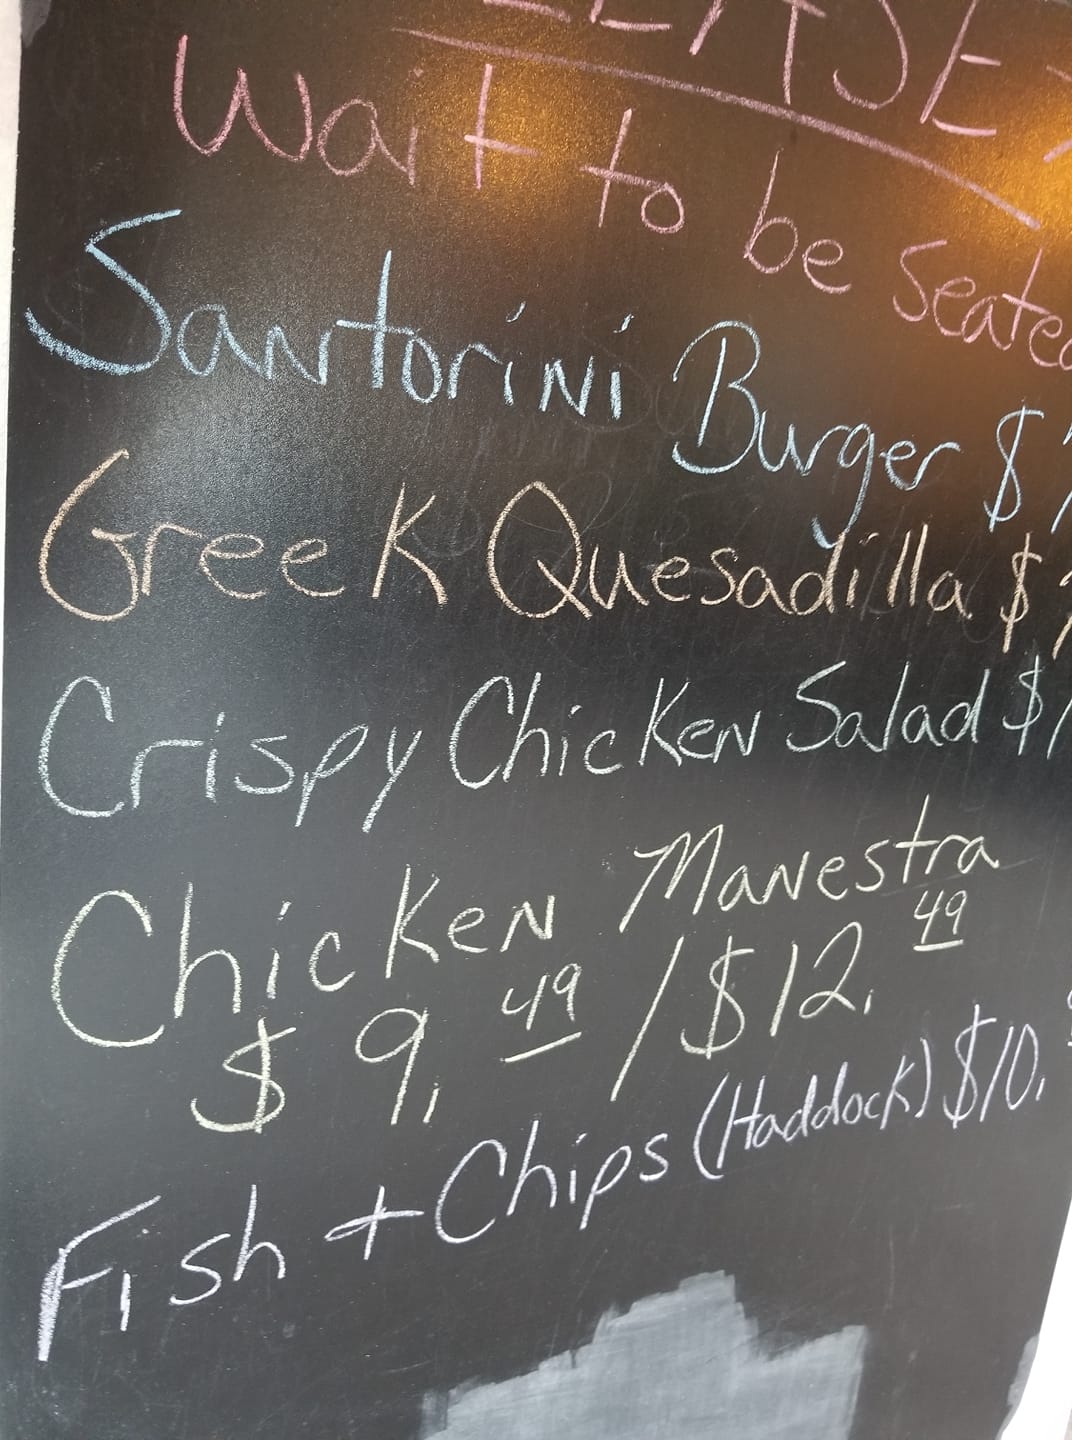 PLEASE
Wait to be seated
Santorini Burger $
Greek Quesadilla $
Crispy Chicken Salad $
Chicken Manestra
$9.49 / $12.49
Fish + Chips (Haddock) $10.